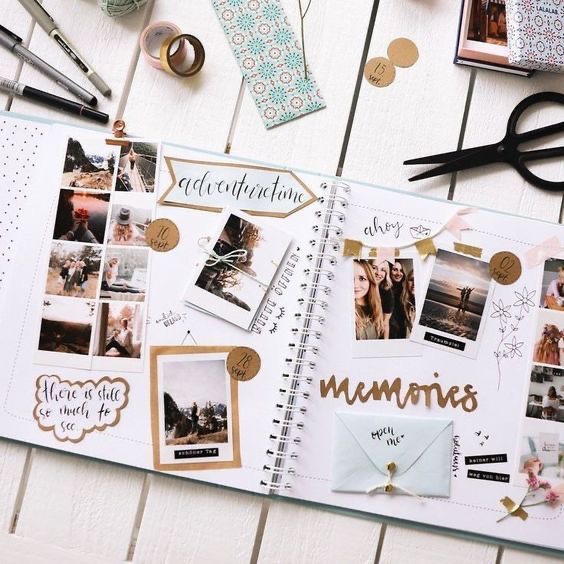 LALALAB.
15
sept
adventuretime
10
sept
BITTE ÖFFNEN
28
sept
schöner Tag
there is still
so much to
see
ahoy
02
sept
Traumziel
Traumtag
memories
open
me
keiner will
weg von hier